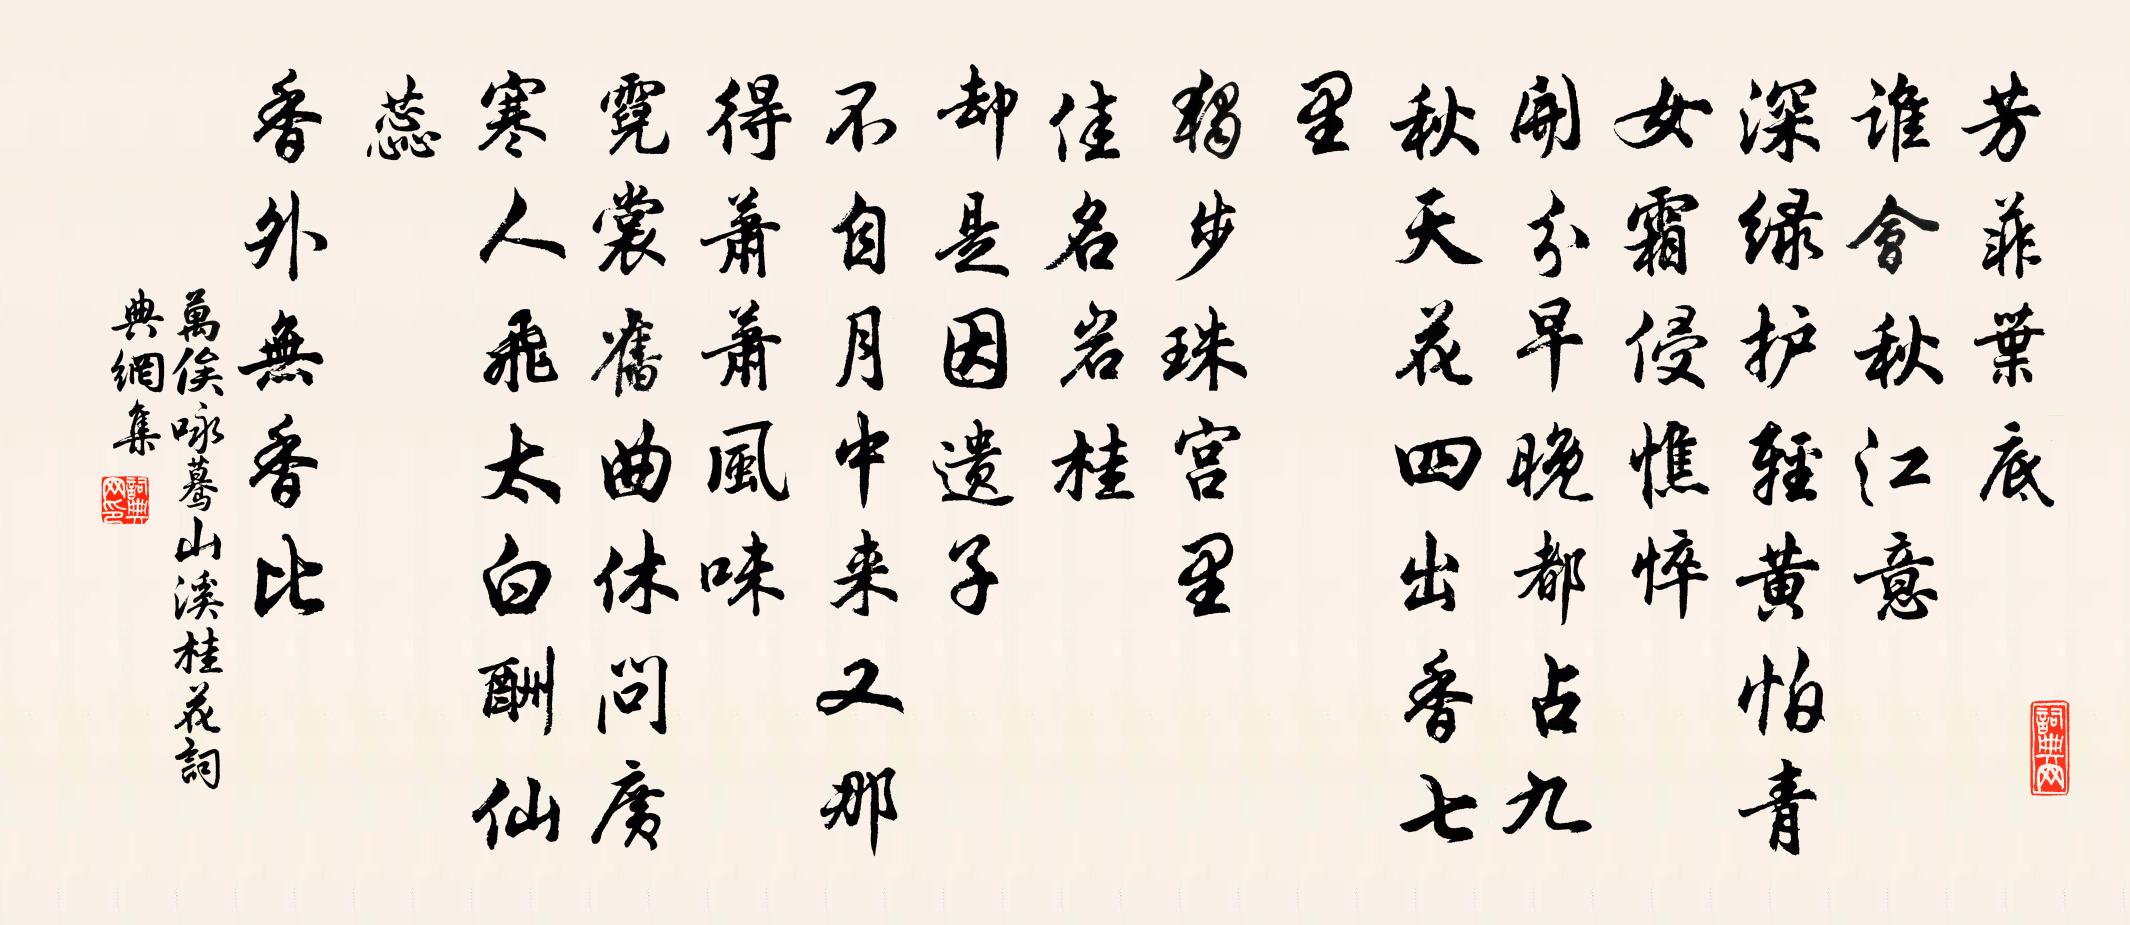 芳菲葉底
谁會秋江意
深绿护輕黄怕青
女霜侵憔悴
開分早晚都占九
秋天花四出香七
里
獨步珠宫里
佳名岩桂
却是因遗子
不自月中来又那
得萧萧風味
霓裳舊曲休问廣
寒人飛太白酬仙
蕊
香外無香比
萬俟咏驀山溪桂花詞
典網集
詞典网
詞典网印